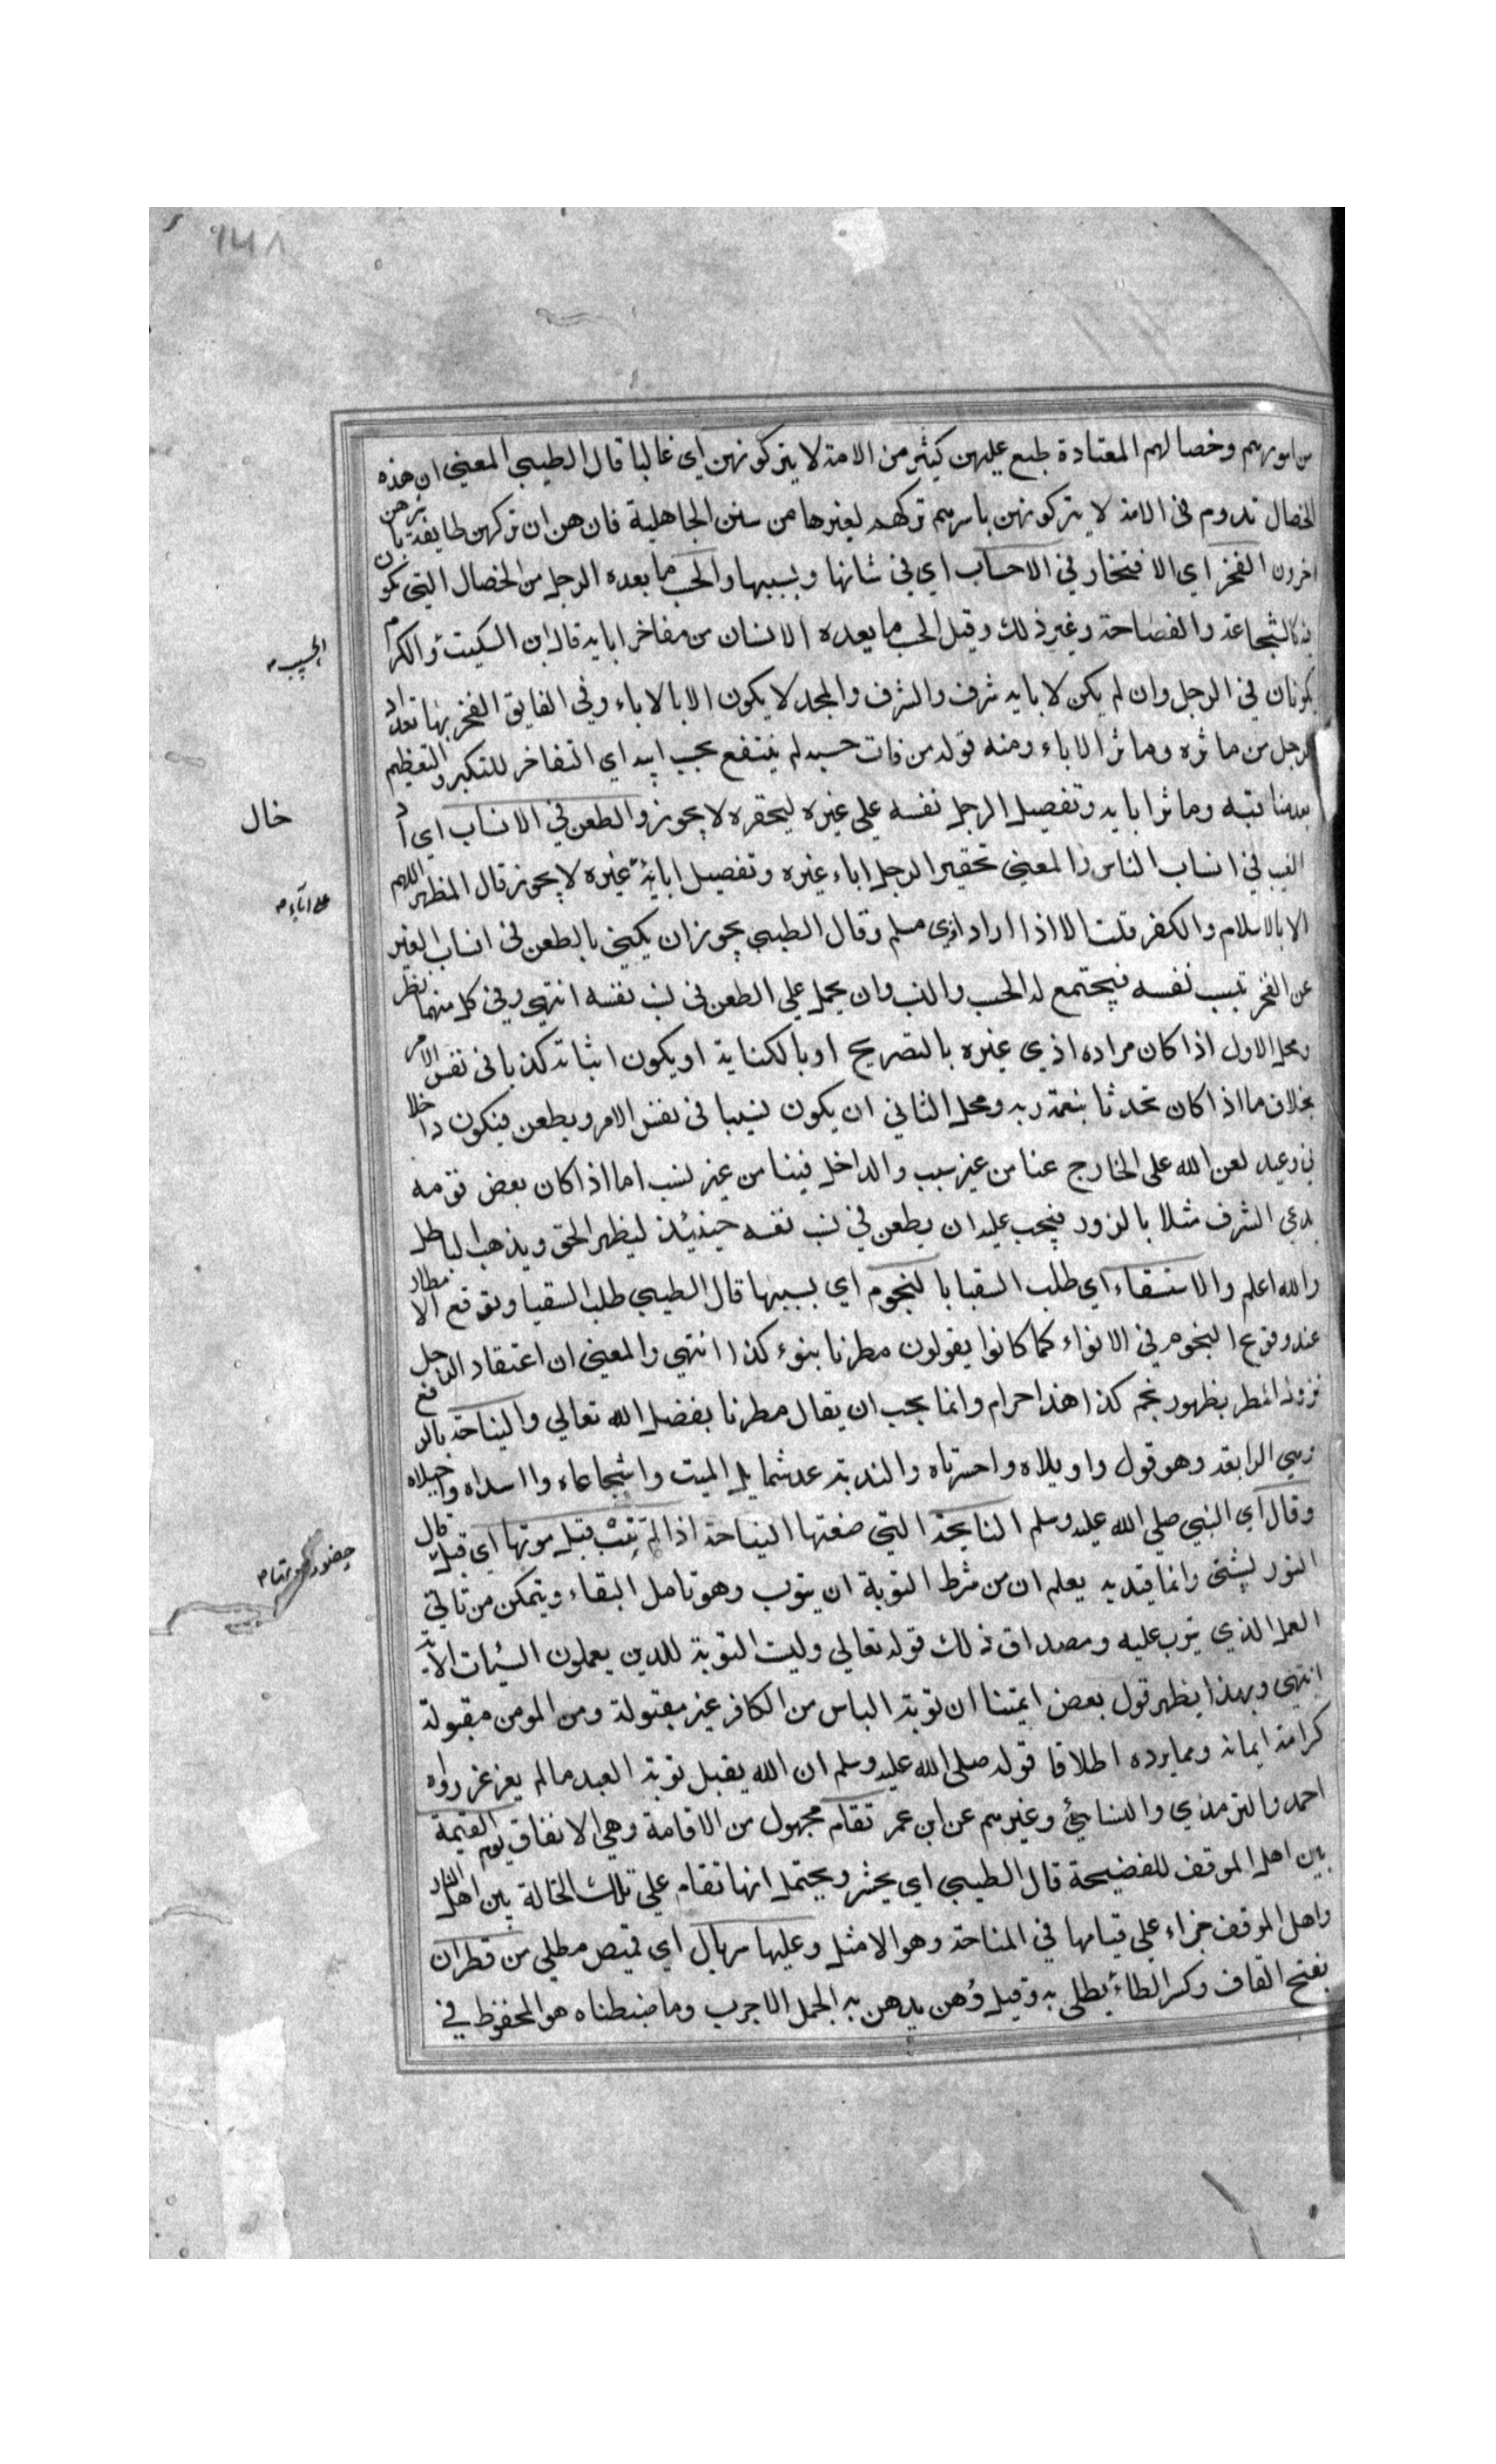 من امورهم وخصالهم المعتادة طبع عليهن كثير من الامة لا يتركونهن اي غالبا قال الطيبي المعني ان هذه
الخصال تدوم في الامة لا يتركونهن باسرهم تركهم لغيرها من سنن الجاهلية فان هن ان تركهن طايفة باشرهن
اخرون الفخر اي الافتخار في الاحساب اي في شانها وبسببها والحسب ما يعده الرجل من الخصال التي تكون
فيه كالشجاعة والفصاحة وغير ذلك وقيل الحسب ما يعده الانسان من مفاخر ابايه قال ابن السكيت والكرم
يكونان في الرجل وان لم يكن لابايه شرف والشرف والمجد لا يكون الا بالاباء وفي الفايق الفخر بها تعداد
الرجل من ماثره وماثر الاباء ومنه قوله من فات حسبه لم ينتفع بحسب ابيه اي التفاخر للتكبر والتعظيم
بعد مناقبه وماثر ابايه وتفصيل الرجل نفسه علي غيره ليحقره لا يجوز والطعن في الانساب اي اد
العيب في انساب الناس والمعني تحقير الرجل اباء غيره وتفصيل ابائه غيره لا يجوز قال المظهر اللهم
الا بالاسلام والكفر قلت الا اذا اراد اذي مسلم وقال الطيبي يجوز ان يكني بالطعن في انساب الغير
عن الفخر بنسب نفسه فيجتمع له الحسب والنسب وان يحمل علي الطعن في نسب نفسه انتهي وفي كل منهما نظر
ومحل الاول اذا كان مراده اذي غيره بالتصريح او بالكناية او يكون اثباته كذبا في نفس الامر
بخلاف ما اذا كان تحدثا بنعمة ربه ومحل الثاني ان يكون نسيبا في نفس الامر ويطعن فيكون داخلا
في وعيد لعن الله علي الخارج عنا من غير سبب والداخل فينا من غير نسب اما اذا كان بعض قومه
يدعي الشرف مثلا بالزور فيجب عليه ان يطعن في نسب نفسه حينئذ ليظهر الحق ويذهب الباطل
والله اعلم والاستسقاء اي طلب السقيا بالنجوم اي بسببها قال الطيبي طلب السقيا وتوقع الامطار
عند وقوع النجوم في الانواء كما كانوا يقولون مطرنا بنوء كذا انتهي والمعني ان اعتقاد الرجل
نزول المطر بظهور نجم كذا هذا حرام وانما يجب ان يقال مطرنا بفضل الله تعالي والنياحة بالرفع
وهي الرابعة وهو قول واويلاه واحسرتاه والندبة عد شمايل الميت واشجاعاه وااسداه واجبلاه
وقال اي النبي صلي الله عليه وسلم النايحة التي صنعتها النياحة اذا لم تتب قبل موتها اي قبل قال
التور بشتي وانما قيد به يعلم ان من شرط التوبة ان يتوب وهو تامل البقاء ويتمكن من تاتي
العمل الذي يترب عليه ومصداق ذلك قوله تعالي وليست التوبة للذين يعملون السيئات الاية
انتهي وبهذا يظهر قول بعض ايمتنا ان توبة الباس من الكافر غير مقبولة ومن المومن مقبولة
كرامة ايمانه ومما يرده اطلاقا قوله صلي الله عليه وسلم ان الله يقبل توبة العبد ما لم يغرغر رواه
احمد والترمذي والنسائي وغيرهم عن ابن عمر تقام مجهول من الاقامة وهي الانفاق يوم القيمة
بين اهل الموقف للفضيحة قال الطيبي اي يحشر ويحتمل انها تقام علي تلك الحالة بين اهل النار
واهل الموقف جزاء علي قيامها في المناحة وهو الامثل وعليها سربال اي قميص مطلي من قطران
بفتح القاف وكسر الطاء يطلي به وقيل دُهن يدهن به الجمل الاجرب وما ضبطناه هو المحفوظ في
الحسب
خال
علي آباء
حضور موتها